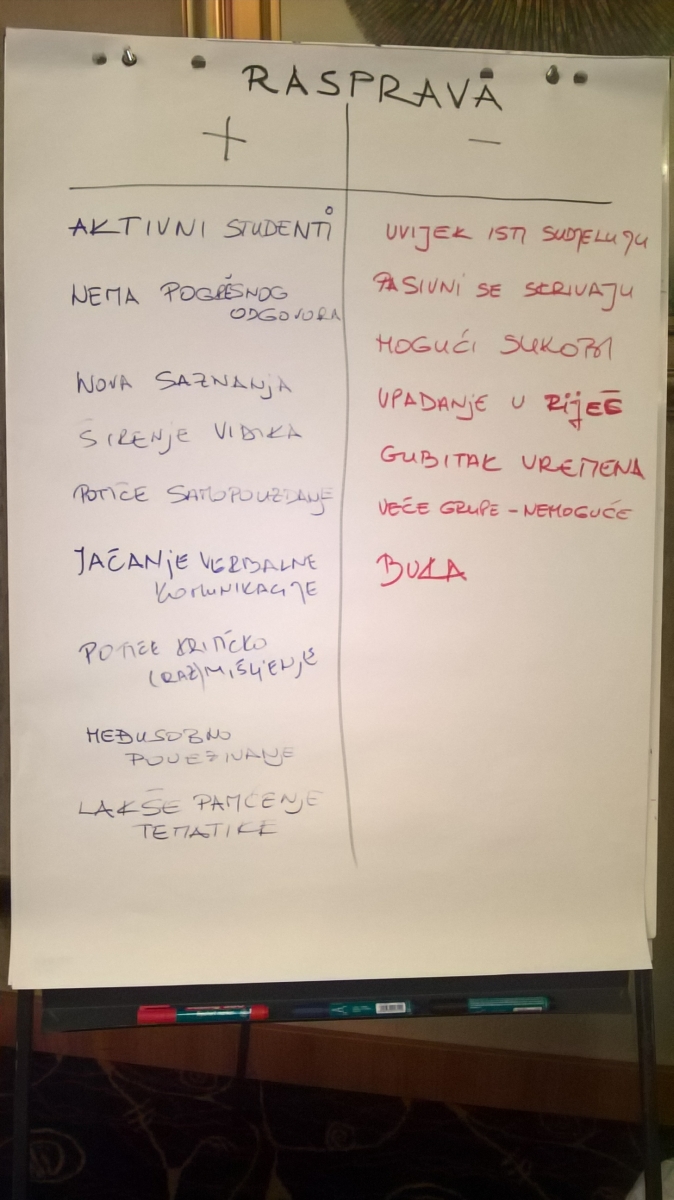 RASPRAVA
+
−
AKTIVNI STUDENTI
NEMA POGREŠNOG
ODGOVORA
NOVA SAZNANJA
ŠIRENJE VIDIKA
POTIČE SAMOPOUZDANJE
JAČANJE VERBALNE
KOMUNIKACIJE
POTIČE KRITIČKO
(RAZ)MIŠLJENJE
MEĐUSOBNO
POVEZIVANJE
LAKŠE PAMĆENJE
TEMATIKE
UVIJEK ISTI SUDJELUJU
PASIVNI SE SKRIVAJU
MOGUĆI SUKOBI
UPADANJE U RIJEČ
GUBITAK VREMENA
VEĆE GRUPE - NEMOGUĆE
BUKA